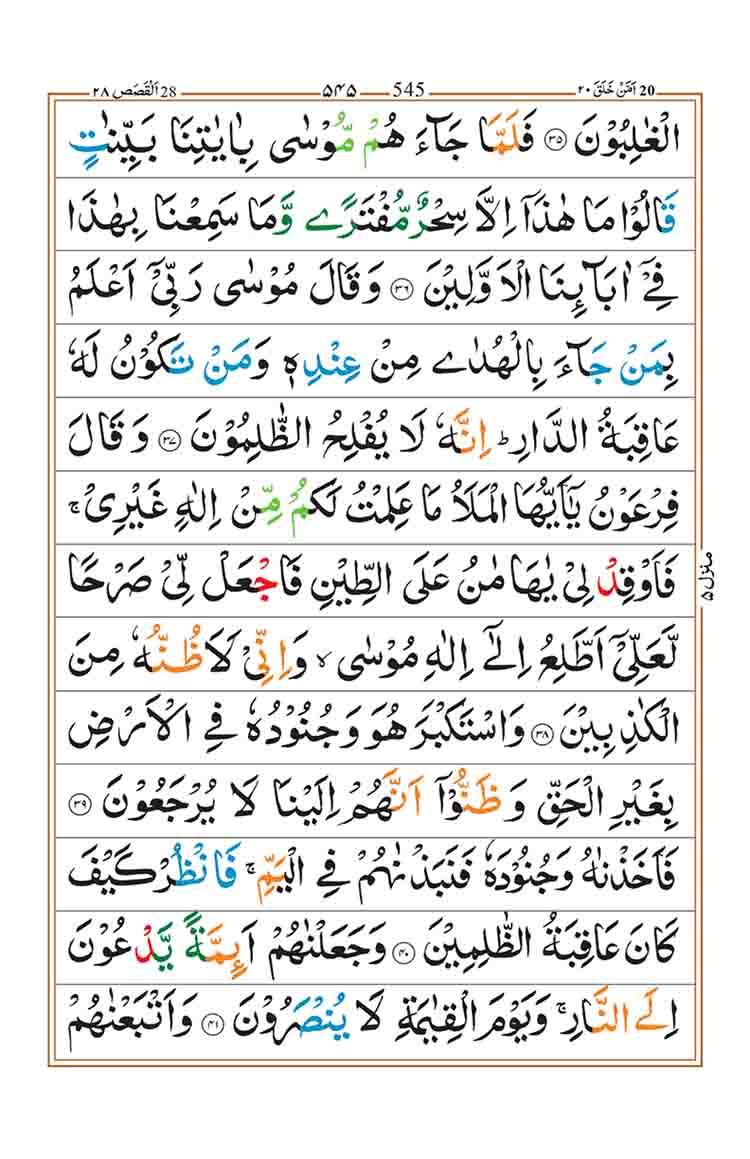 20 اَمَّنْ خَلَقَ ۲۰ 545 ۵۴۵ 28 اَلْقَصَص ۲۸
الْغٰلِبُوْنَ ۝۳۵ فَلَمَّا جَآءَ هُمْ مُّوْسٰى بِاٰيٰتِنَا بَيِّنٰتٍ
قَالُوْا مَا هٰذَآ اِلَّا سِحْرٌ مُّفْتَرًے وَّ مَا سَمِعْنَا بِهٰذَا
فِيْٓ اٰبَآئِنَا الْاَوَّلِيْنَ ۝۳۶ وَ قَالَ مُوْسٰى رَبِّيْٓ اَعْلَمُ
بِمَنْ جَآءَ بِالْهُدٰے مِنْ عِنْدِهٖ وَمَنْ تَكُوْنُ لَهٗ
عَاقِبَةُ الدَّارِ ؕ اِنَّهٗ لَا يُفْلِحُ الظّٰلِمُوْنَ ۝۳۷ وَ قَالَ
فِرْعَوْنُ يٰٓاَيُّهَا الْمَلَاُ مَا عَلِمْتُ لَكُمْ مِّنْ اِلٰهٍ غَيْرِيْ ۚ
فَاَوْقِدْ لِيْ يٰهَا مٰنُ عَلَى الطِّيْنِ فَاجْعَلْ لِّيْ صَرْحًا
لَّعَلِّيْٓ اَطَّلِعُ اِلٰٓے اِلٰهِ مُوْسٰى ۙ وَاِنِّيْ لَاَظُنُّهٗ مِنَ
الْكٰذِبِيْنَ ۝۳۸ وَاسْتَكْبَرَ هُوَ وَجُنُوْدُهٗ فِي الْاَرْضِ
بِغَيْرِ الْحَقِّ وَ ظَنُّوْٓا اَنَّهُمْ اِلَيْنَا لَا يُرْجَعُوْنَ ۝۳۹
فَاَخَذْنٰهُ وَجُنُوْدَهٗ فَنَبَذْنٰهُمْ فِي الْيَمِّ ۚ فَانْظُرْ كَيْفَ
كَانَ عَاقِبَةُ الظّٰلِمِيْنَ ۝۴۰ وَجَعَلْنٰهُمْ اَئِمَّةً يَّدْعُوْنَ
اِلَے النَّارِ ۚ وَيَوْمَ الْقِيٰمَةِ لَا يُنْصَرُوْنَ ۝۴۱ وَاَتْبَعْنٰهُمْ
منزل ۵